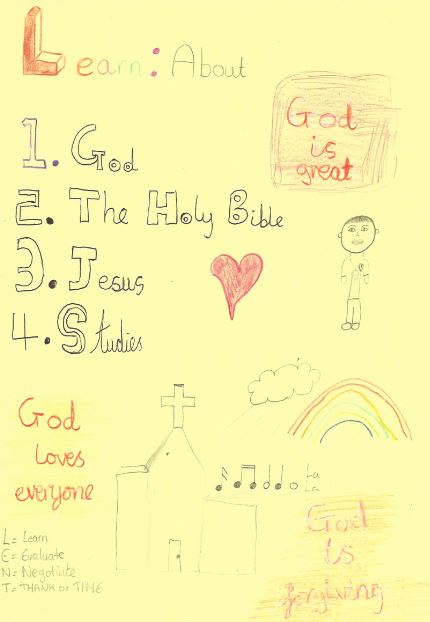 Learn: About
1. God
2. The Holy Bible
3. Jesus
4. Studies
God
is
great
God
loves
everyone
La
La
God
is
forgiving
L= Learn
E= Evaluate
N= Negotiate
T= THANK or TIME